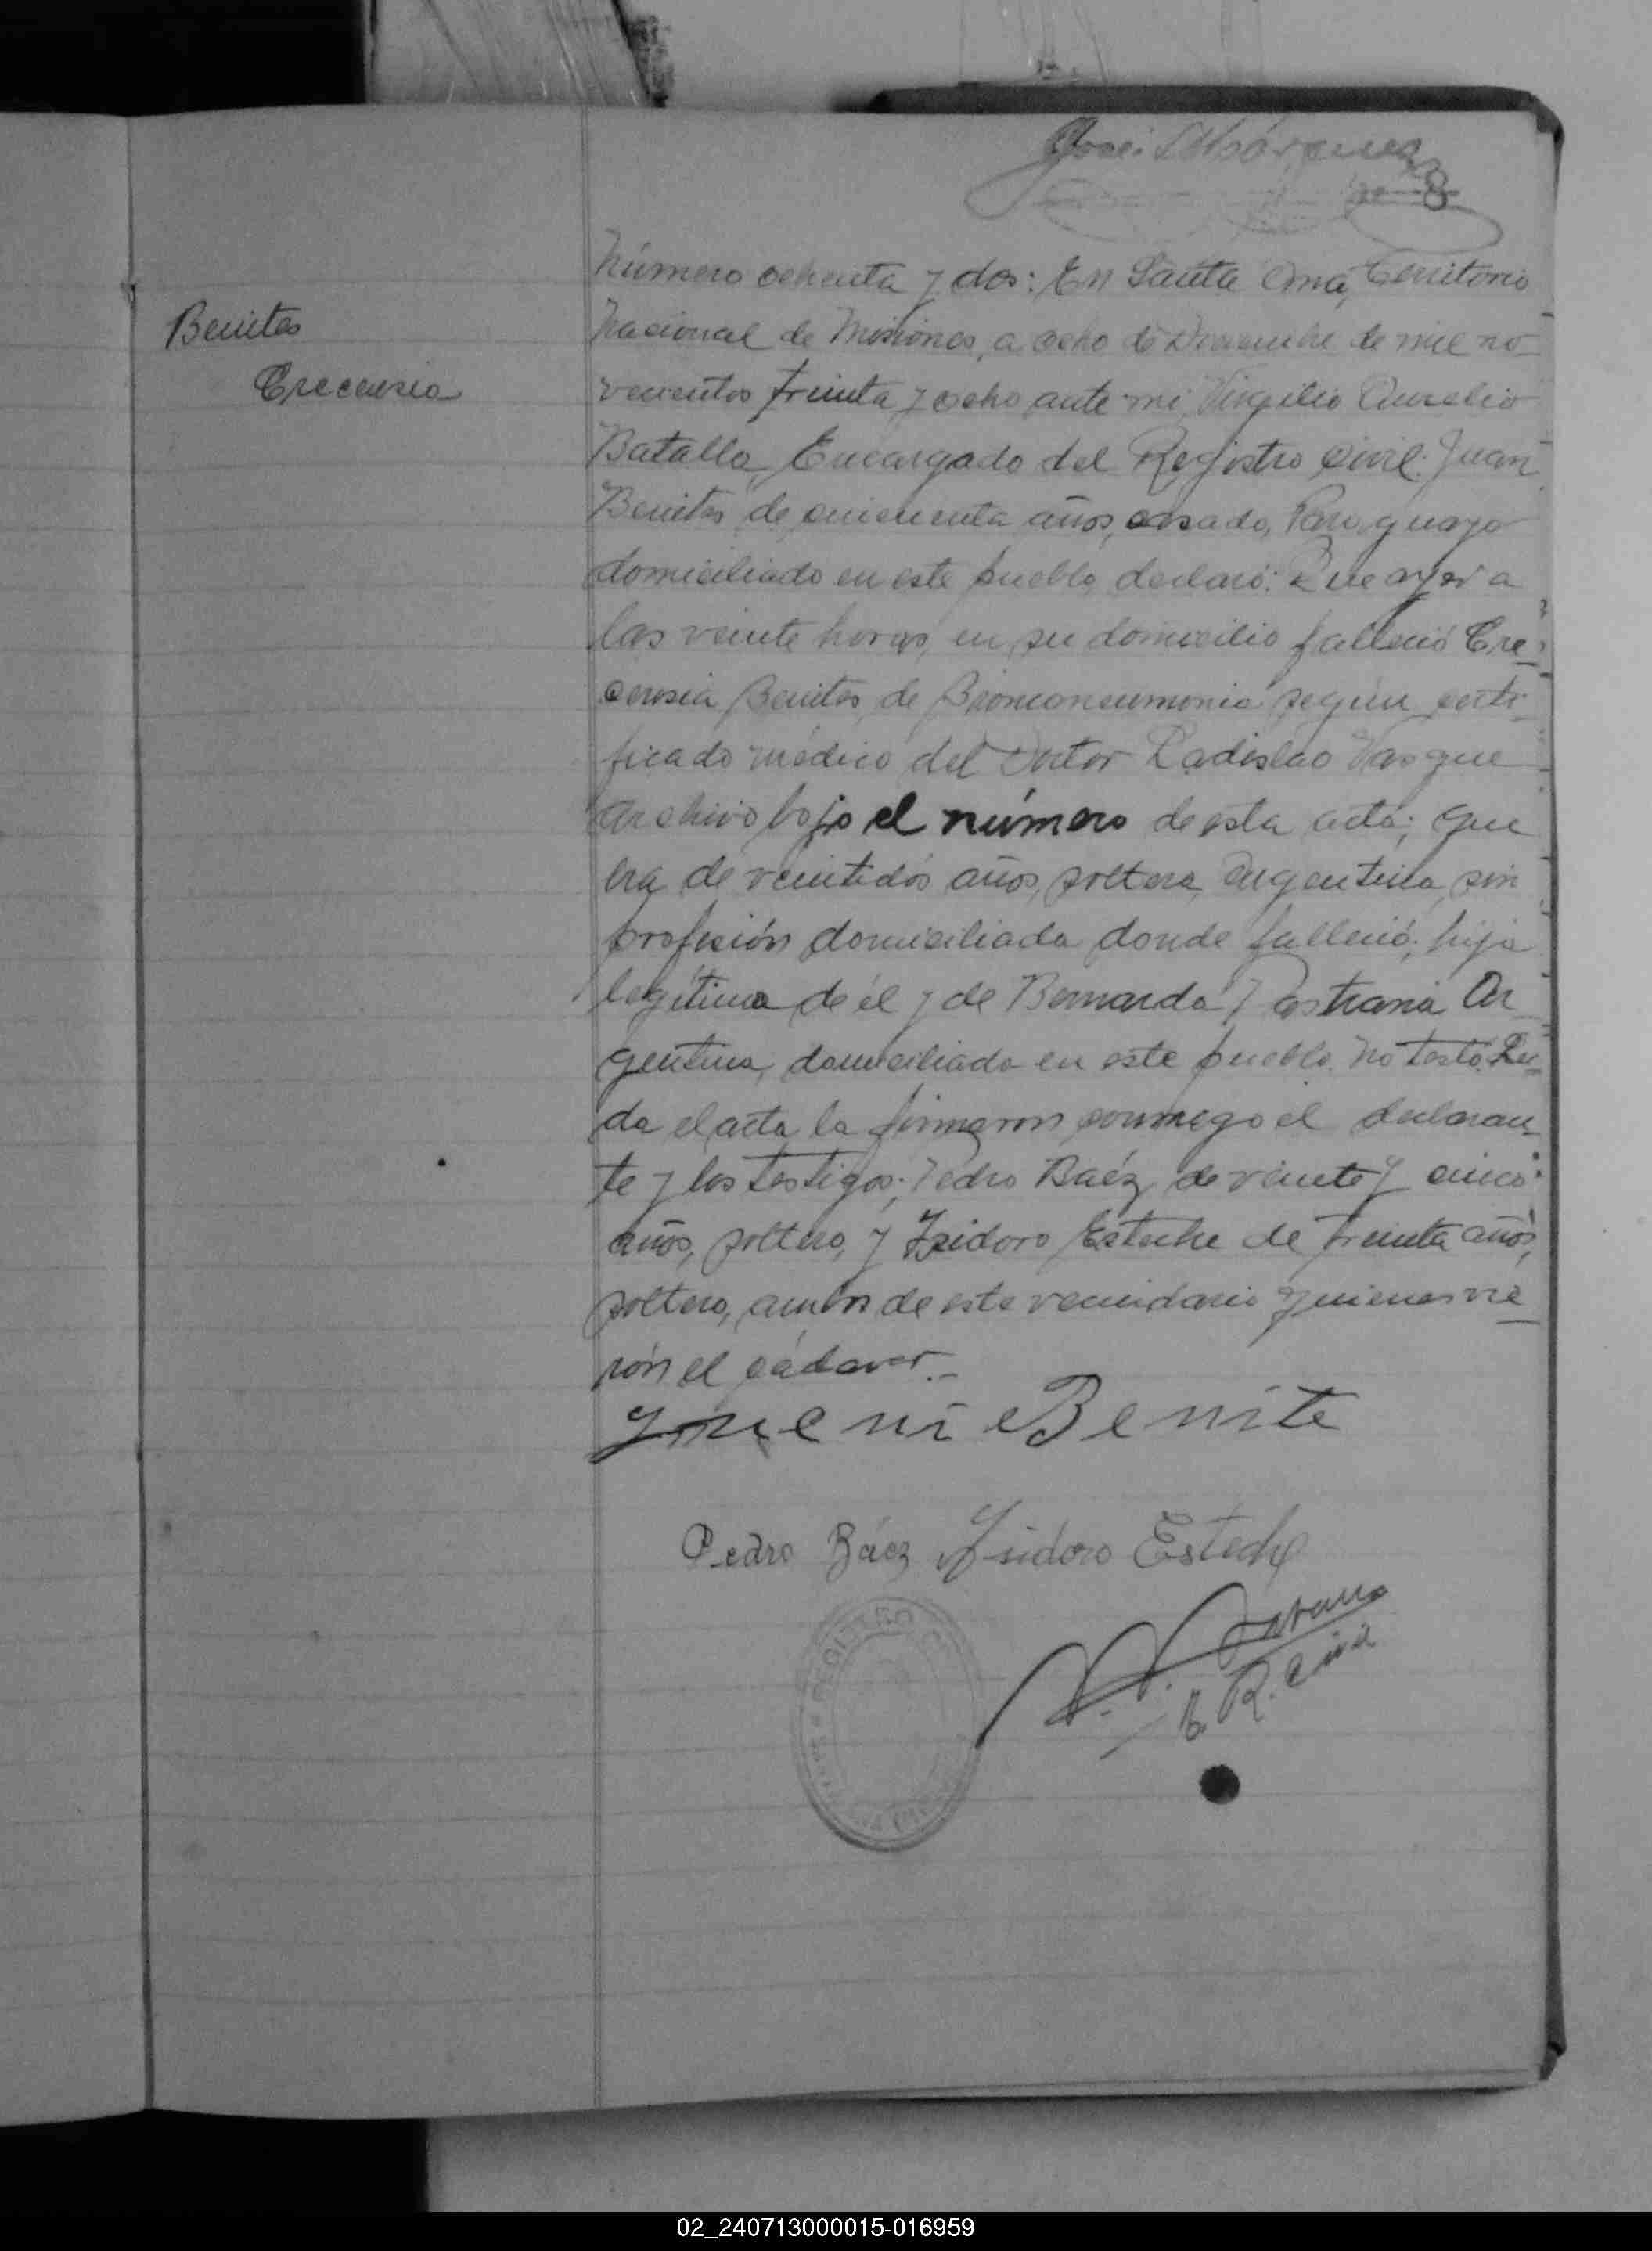 José
8
Número ochenta y dos: En Santa Ana, Territorio
Benites
Nacional de Misiones, a ocho de de mil no-
Crecensia
vecientos treinta y ocho ante mi Virgilio Aurelio
Batalla, Encargado del Registro Civil: Juan
Benites de cincuenta años, casado, Paraguayo
domiciliado en este pueblo, declaró: Que ayer a
las veinte horas, en su domicilio falleció Cre-
censia Benites, de Bronconeumonia según certi-
ficado médico del Doctor Ladislao que
archivo bajo el número de esta acta; que
era de veintidós años, soltera, Argentina, sin
profesión domiciliada donde falleció; hija
legitima de él y de Bernarda Pastrana Ar-
gentina, domiciliada en este pueblo. No testó. Leí-
da el acta la firmaron conmigo el declaran-
te y los testigos; Pedro Baéz, de veinte y cinco
años, soltero, y Isidoro Esteche de treinta años,
soltero, ambos de este vecindario quienes vie-
rón el cádaver.-
Benite
Pedro Báez Isidoro Esteche
E. R. Civil
REGISTRO
02_240713000015-016959